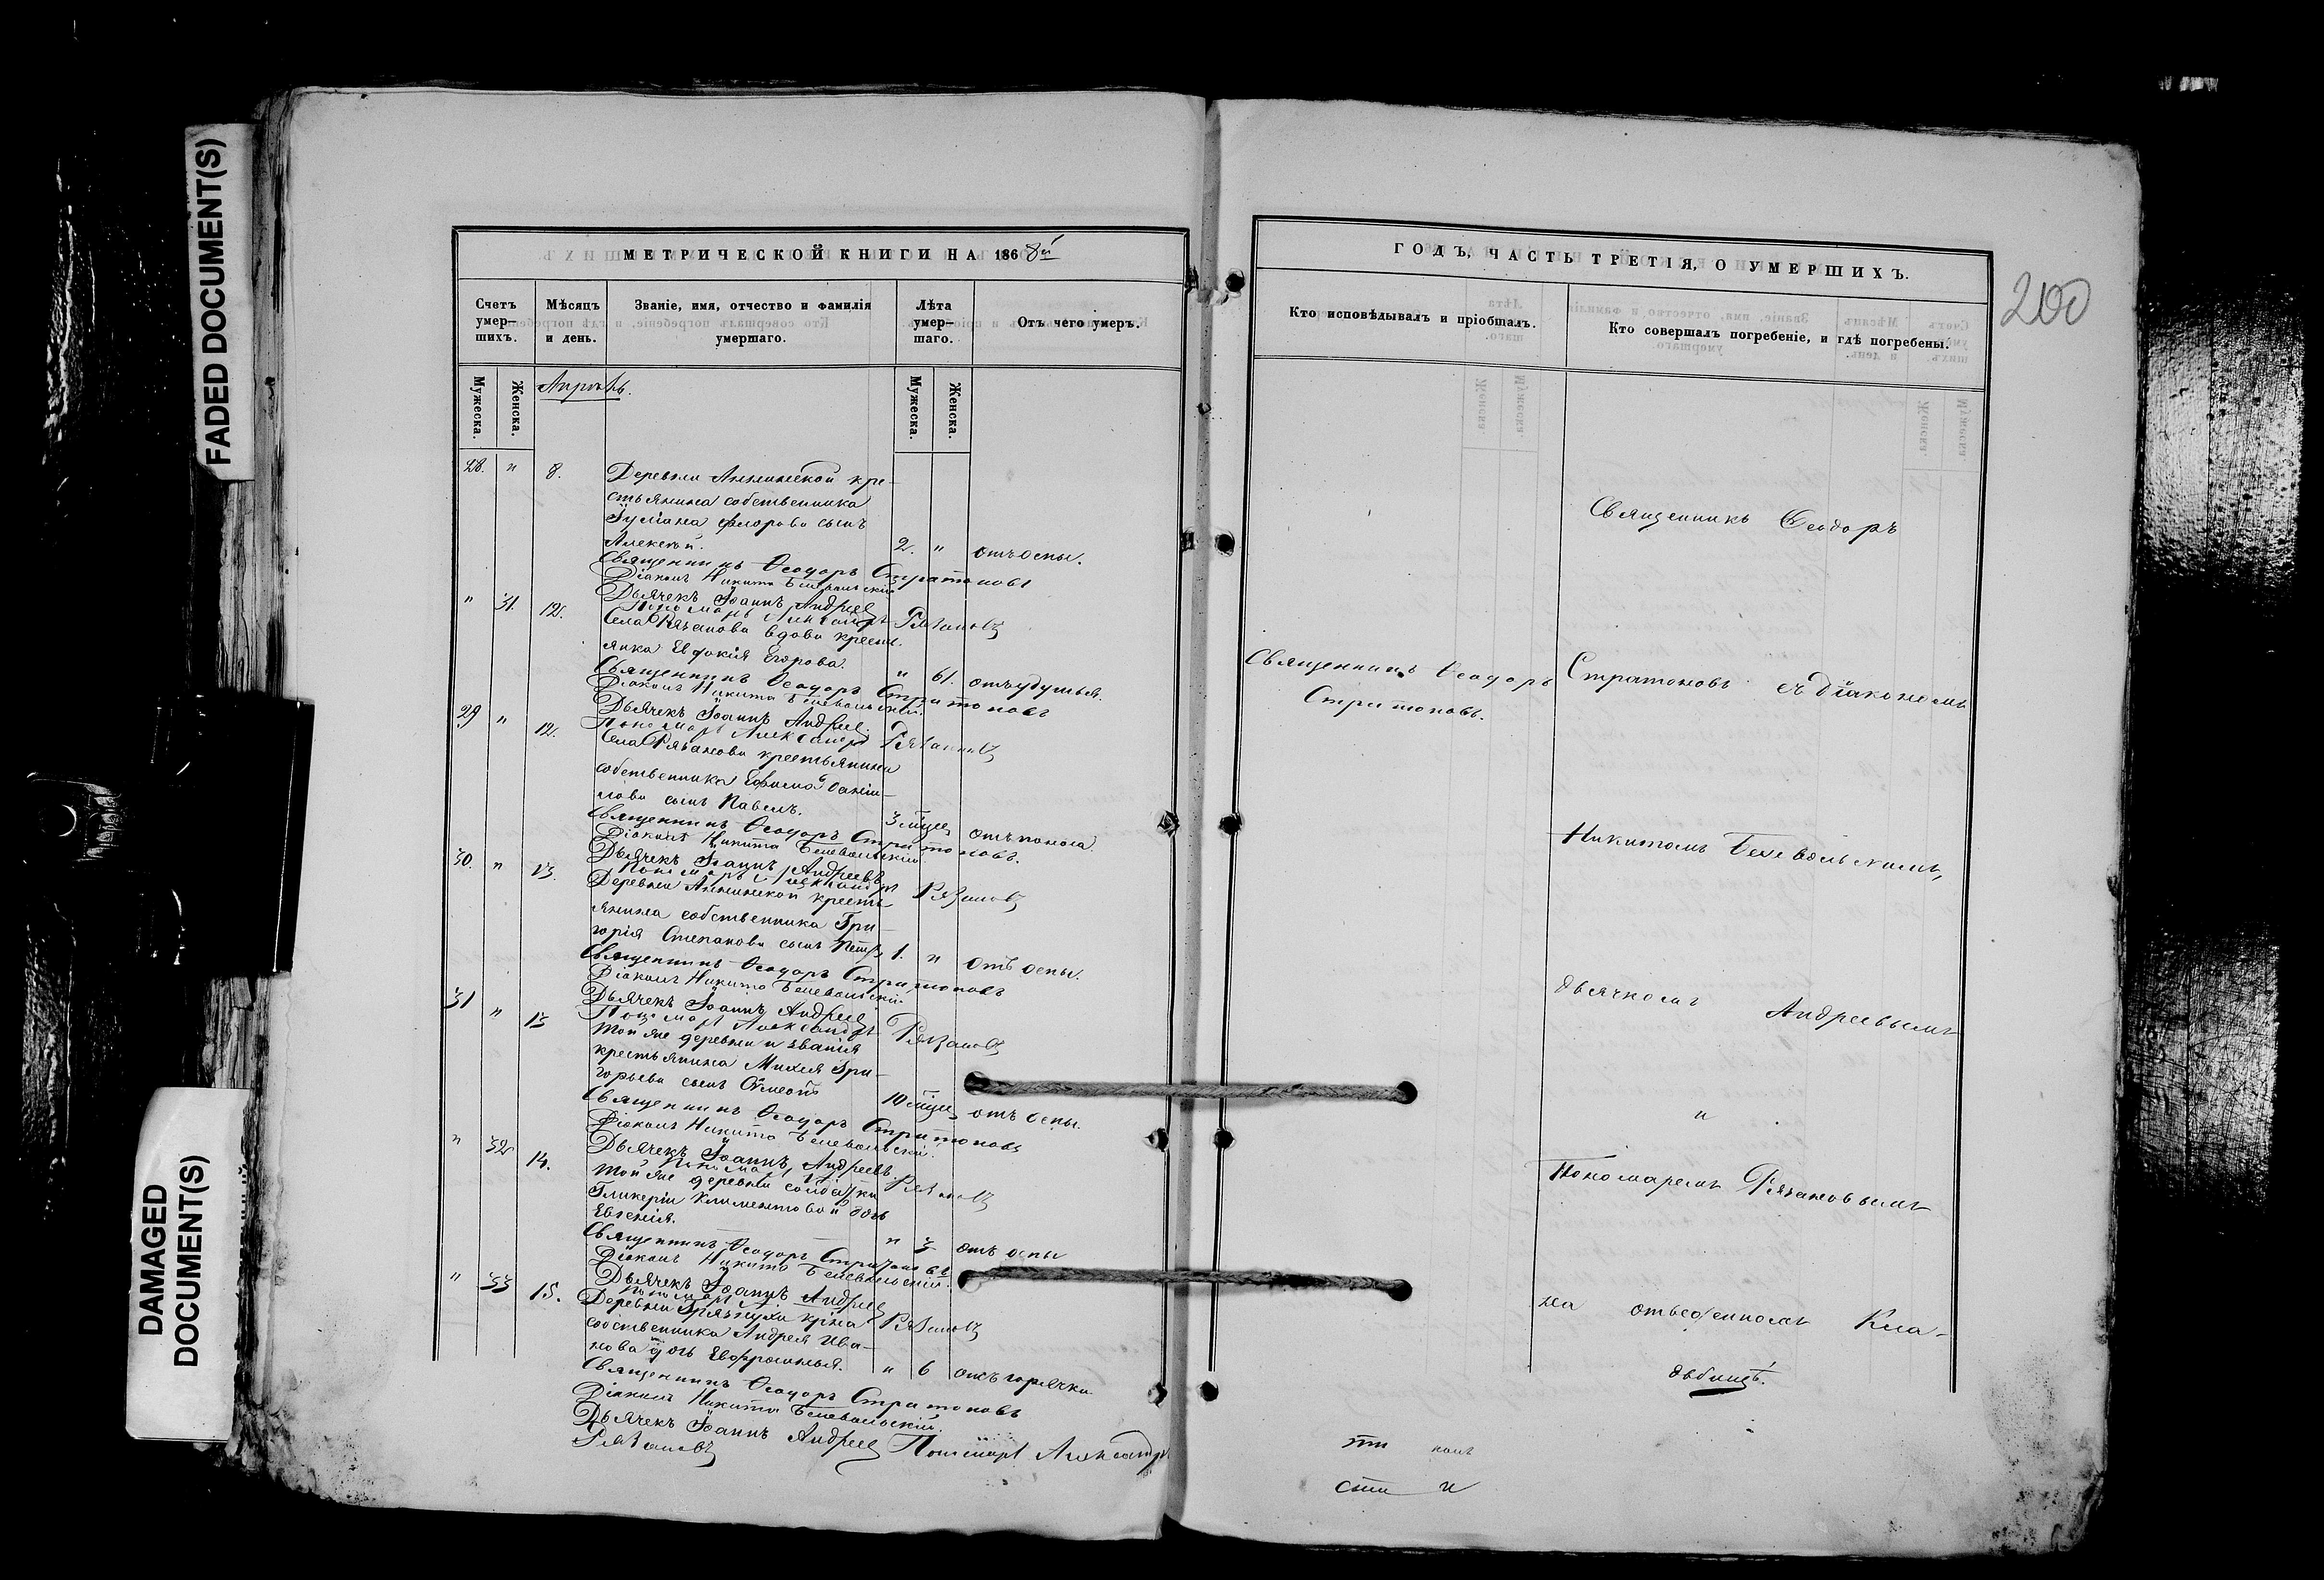 FADED DOCUMENT(S)
DAMAGED DOCUMENT(S)
МЕТРИЧЕСКОЙ КНИГИ НА 1868й
Счетъ умер-шихъ.
Мѣсяцъ и день.
Званіе, имя, отчество и фамилія умершаго.
Лѣта умер-шаго.
Отъ чего умеръ.
Мужеска.
Женска.
Апрѣль.
Мужеска.
Женска.
28. " 8. Деревни Аннинской кре-
стьянина собственника
Іуліана Флорова сынъ
Алексѣй. 2. " отъ оспы.
Священникъ Ѳеодоръ Стратоновъ
Діаконъ Никита
Дьячекъ Іоаннъ Андреевъ
Пономарь Александръ Рязановъ
" 31. 12. Села Рязанова вдова крестъ-
янка Евдокія Егорова. " 61. отъ удушья.
Священникъ Ѳеодоръ Стратоновъ
Діаконъ Никита
Дьячекъ Іоаннъ Андреевъ
Пономарь Александръ Рязановъ
29 " 12. Села Рязанова крестьянина
собственника Ефима Данін-
лова сынъ Павелъ. 3 мѣсец отъ поноса
Священникъ Ѳеодоръ Стратоновъ.
Діаконъ Никита
Дьячекъ Іоаннъ Андреевъ
Пономарь Александръ Рязановъ
30. " 13. Деревни Аннинской кресть-
янина собственника Гри-
горія Степанова сынъ Петръ 1. " отъ оспы.
Священникъ Ѳеодоръ Стратоновъ
Діаконъ Никита
Дьячекъ Іоаннъ Андреевъ
Пономарь Александръ Рязановъ
31 " 13 Той же деревни и званія
крестьянина Михея Гри-
горьева сынъ 10 мѣсец отъ оспы.
Священникъ Ѳеодоръ Стратоновъ
Діаконъ Никита
Дьячекъ Іоаннъ Андреевъ
Пономарь Рязановъ
" 32 14. Той же деревни солдатки
Гликеріи Климентовой дочь
Евгенія. " 3 отъ оспы
Священникъ Ѳеодоръ Стратоновъ
Діаконъ Никита
Дьячекъ Іоаннъ Андреевъ
Пономарь Рязановъ
" 33 15. Деревни Грязнухи кр-на
собственника Андрея Ива-
нова дочь Евфросинья. " 6 отъ горячки.
Священникъ Ѳеодоръ Стратоновъ
Діаконъ Никита
Дьячекъ Іоаннъ Андреевъ Пономарь Александръ
Рязановъ
ГОДЪ, ЧАСТЬ ТРЕТІЯ, О УМЕРШИХЪ.
200
Кто исповѣдывалъ и пріобщалъ.
Кто совершалъ погребеніе, и гдѣ погребены.
Священникъ Ѳеодоръ
Стратоновъ.
Священникъ Ѳеодоръ
Стратоновъ съ діакономъ
Никитомъ
дьячкомъ Андреевымъ
и
Пономаремъ Рязановымъ
на отведенномъ Кла-
дбищѣ.